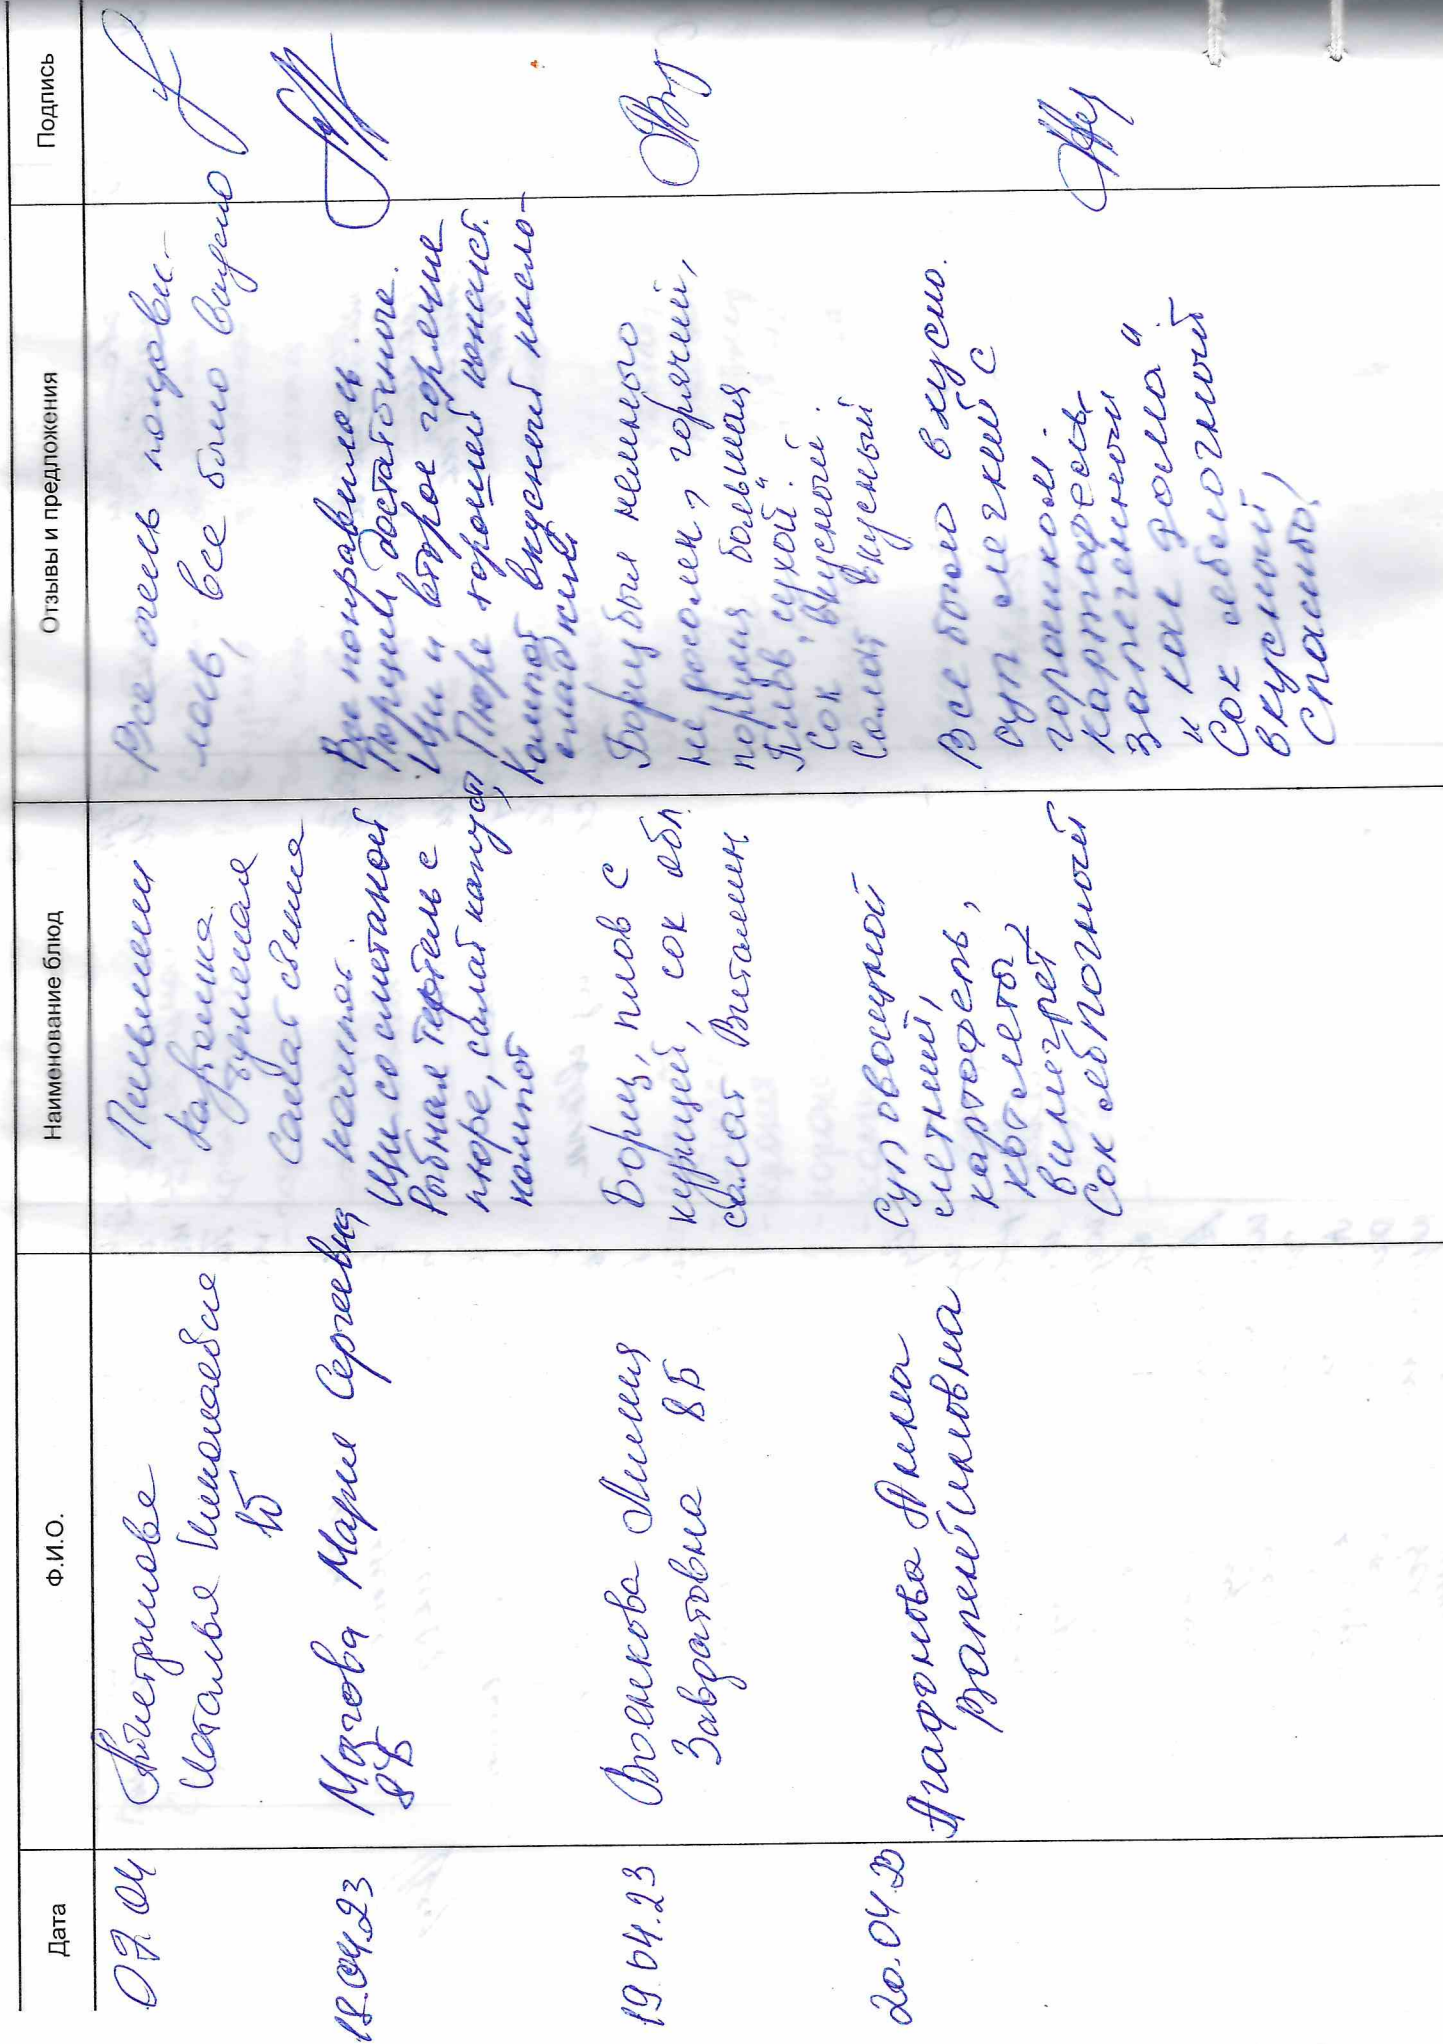 Дата Ф.И.О. Наименование блюд Отзывы и предложения Подпись
07.04
Наталья Николаевна
1Б
Пельмени
Салат свекла
Все очень понрави-
лось, все было вкусно
18.04.23
Мозгова Мария Сергеевна
8Б
компот
Щи со сметаной
Рыбная тефтель с
пюре, салат капуст,
компот
Все понравилось.
Порции достаточные.
Щи и второе горячие
Пюре хорошей консист.
Компот вкусный кисло-
сладкий
19.04.23
Военкова Лилия
8Б
Борщ, плов с
курицей, сок ябл
салат Витамин
Борщ был немного
не досолен, горячий,
порция большая
Плов "сухой".
Сок вкусный.
Салат вкусный
20.04.23
Агафонова Анна
Суп овощной
летний,
картофель,
котлеты,
винегрет
Сок яблочный
Все было вкусно.
Суп легкий с
горошком.
Картофель
запеченный
"как дома"
Сок яблочный
вкусный
Спасибо!